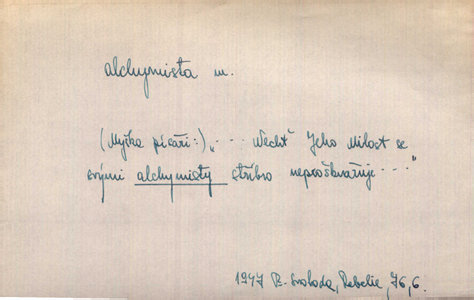 alchymista m.
(Myška písaři:) „ - - - Nechť Jeho Milost se
svými alchymisty stříbro neproškvařuje - - - "
1947 R. Svoboda, Rebelie, 76, 6.